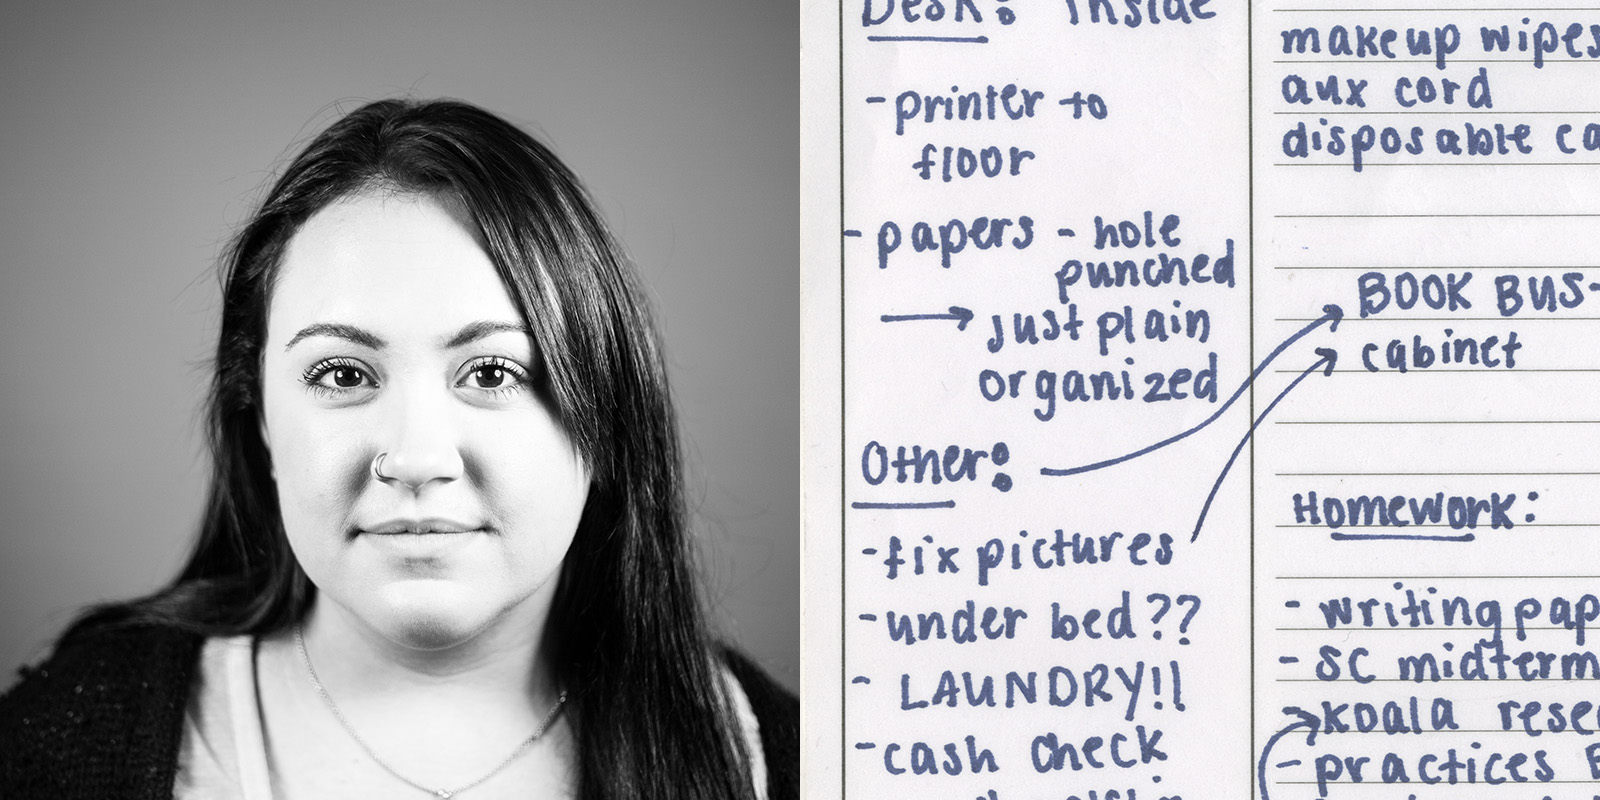 Desk: inside
- printer to
floor
- papers - hole
punched
→ just plain
organized
Other:
- fix pictures
- under bed??
- LAUNDRY!!
- cash check
makeup wipes
aux cord
disposable ca
BOOK BUS-
cabinet
Homework:
- writing pap
- SC midterm
koala resea
- practices